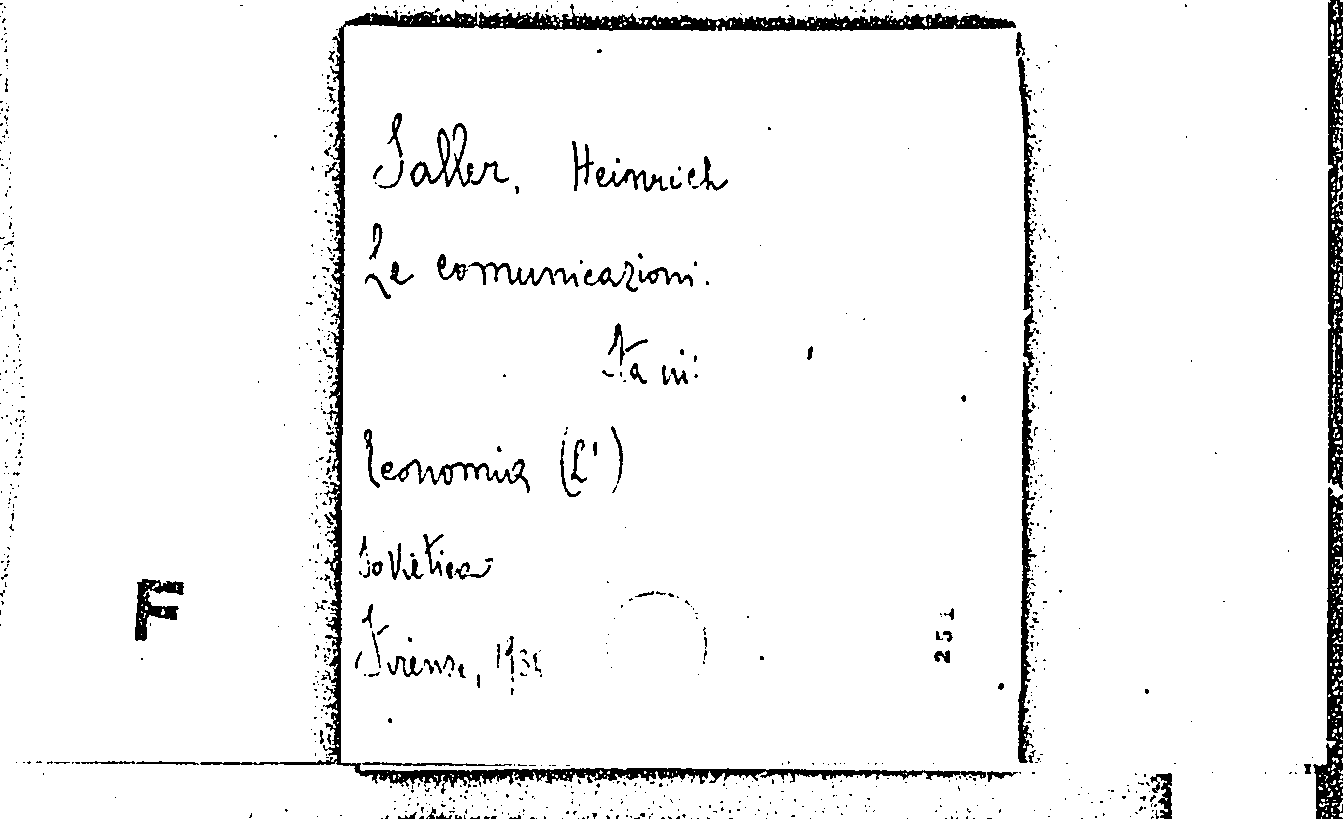 Saller, Heinrich
Le comunicazioni.
Sta in:
Economia (L')
sovietica
Firenze, 193
251
F